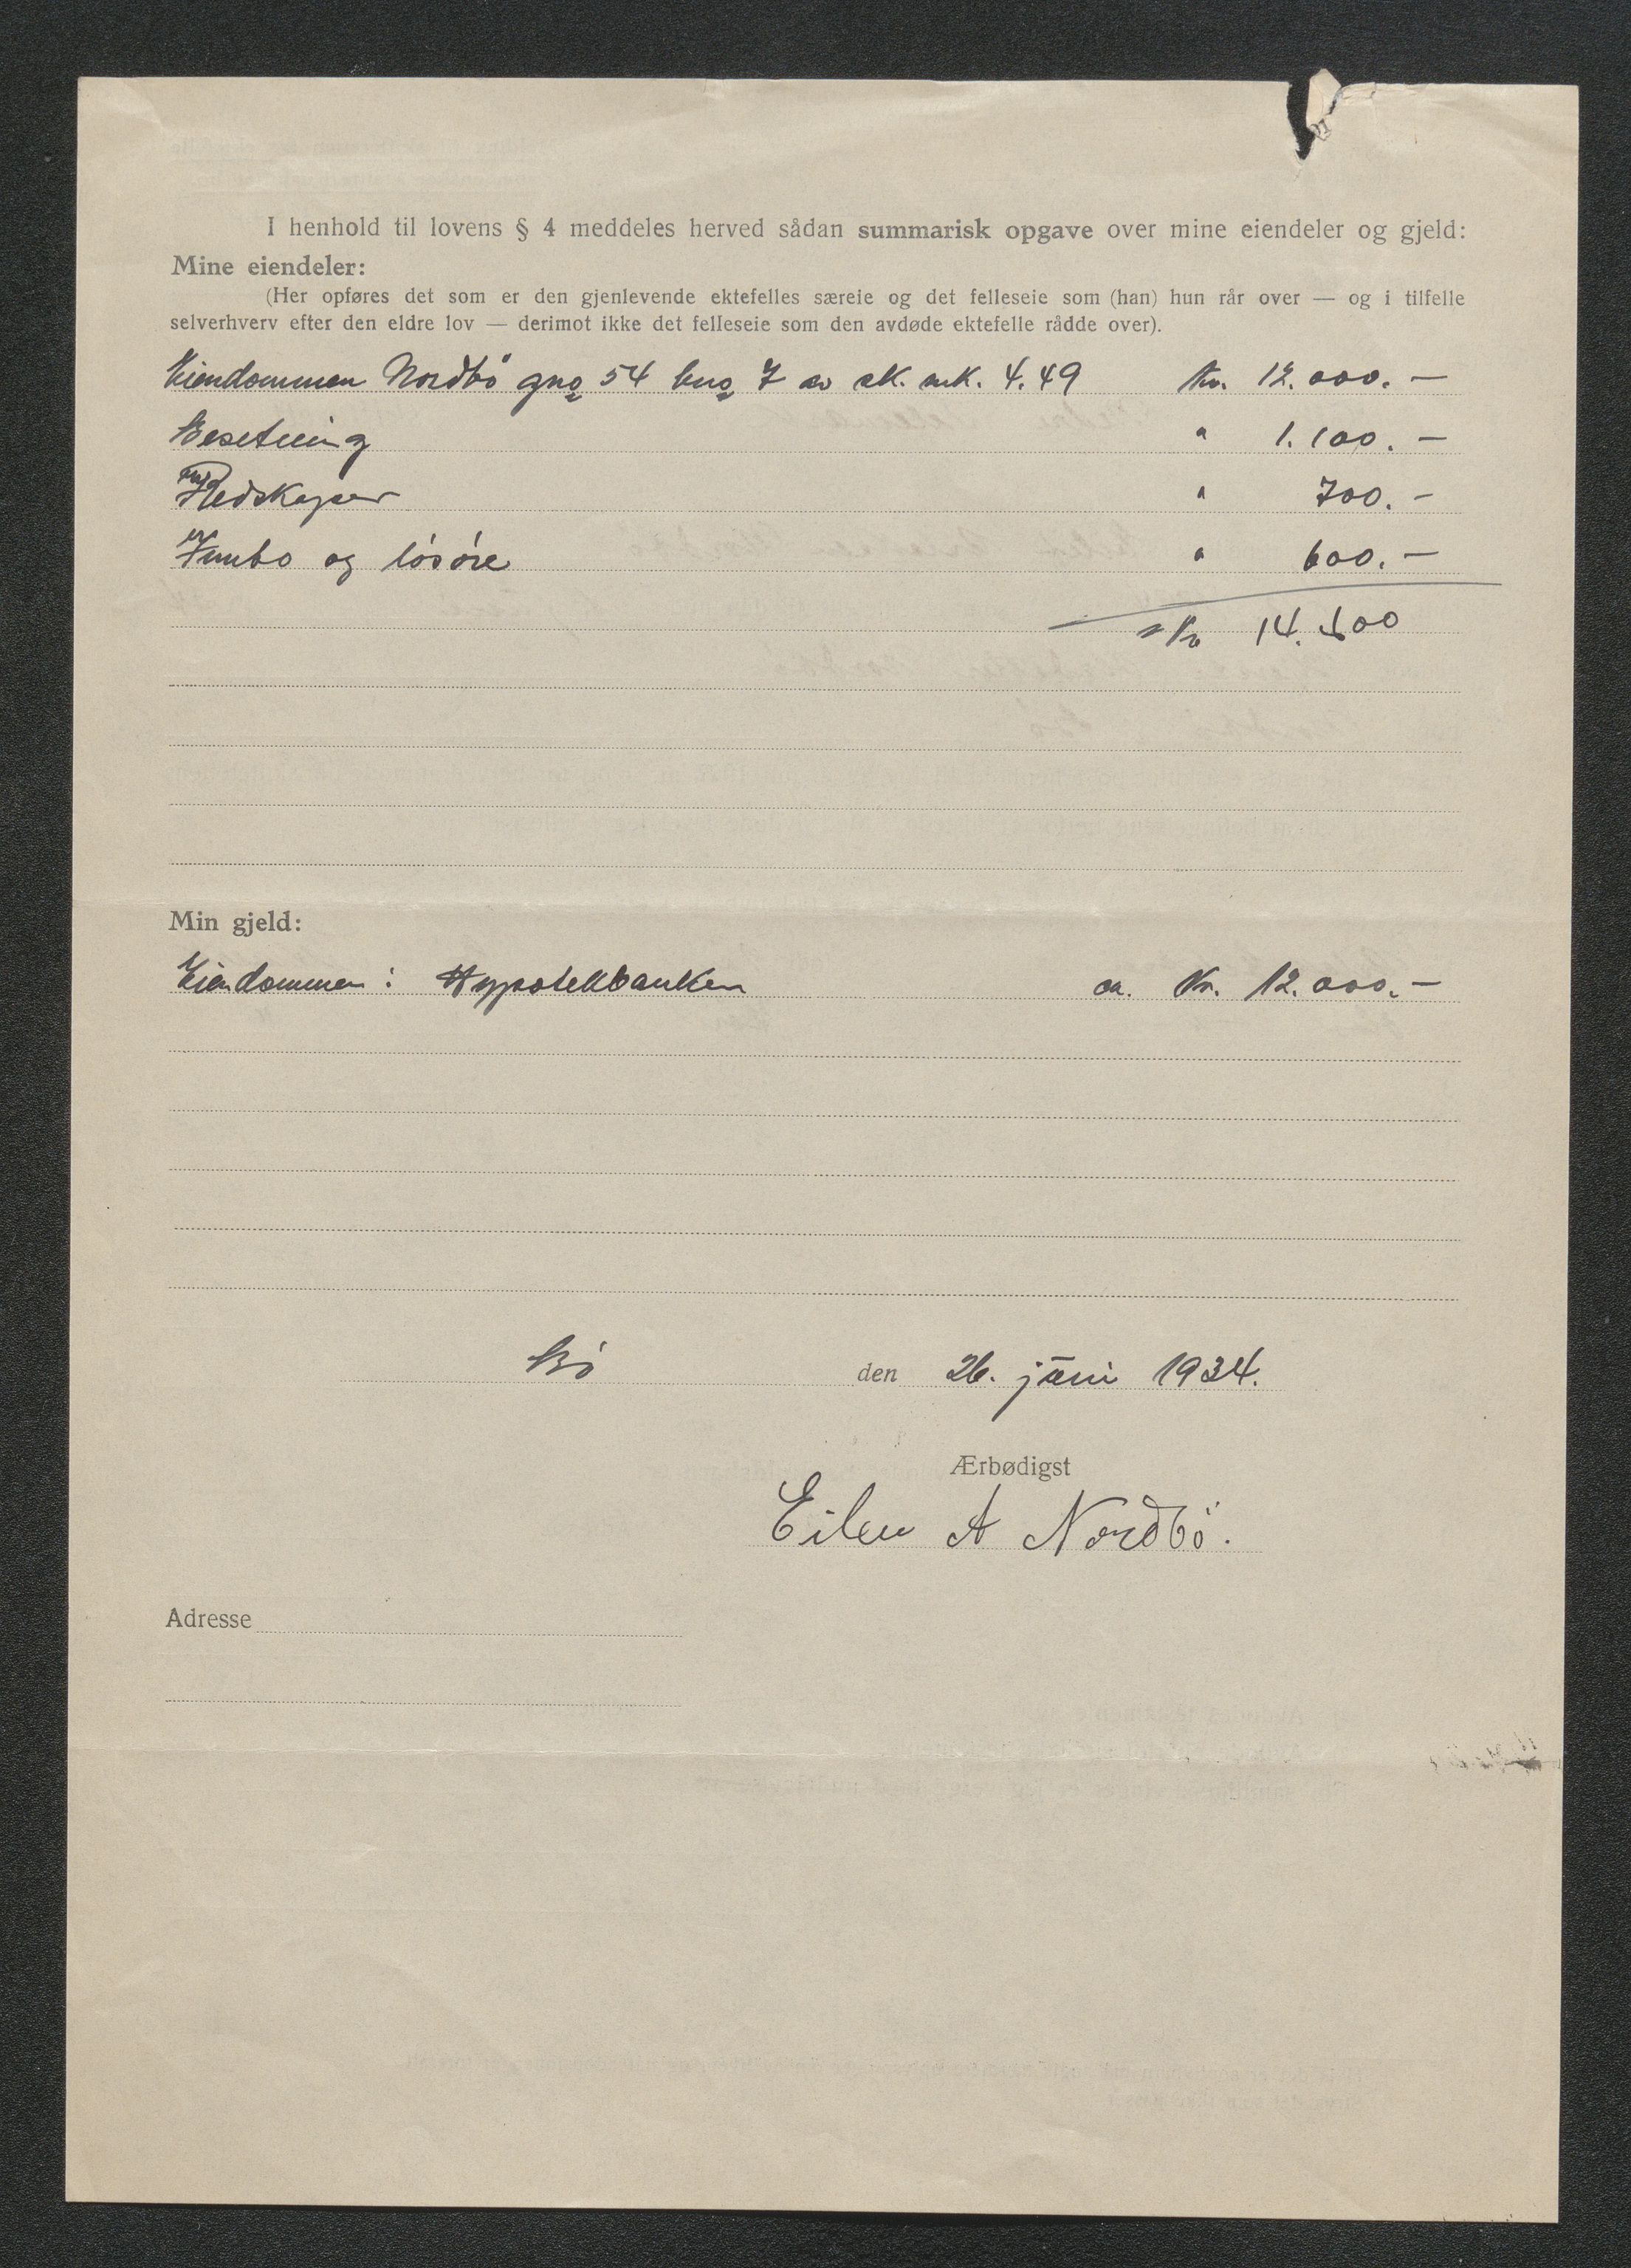 I henhold til lovens § 4 meddeles herved sådan summarisk opgave over mine eiendeler og gjeld:
Mine eiendeler:
(Her opføres det som er den gjenlevende ektefelles særeie og det felleseie som (han) hun rår over — og i tilfelle
selverhverv efter den eldre lov — derimot ikke det felleseie som den avdøde ektefelle rådde over).
Eiendommen Nordbö gno 54 bno 7 av sk. mk. 4.49 kr. 12.000.—
Besetning " 1.100.—
Redskaper " 700.—
Innbo og lösöre " 600.—
Kr 14.400
Min gjeld:
Eiendommen: Hypotekbanken ca. kr. 12.000.—
Bö den 26. juni 1934.
Ærbødigst
Eilev A Nordbö.
Adresse